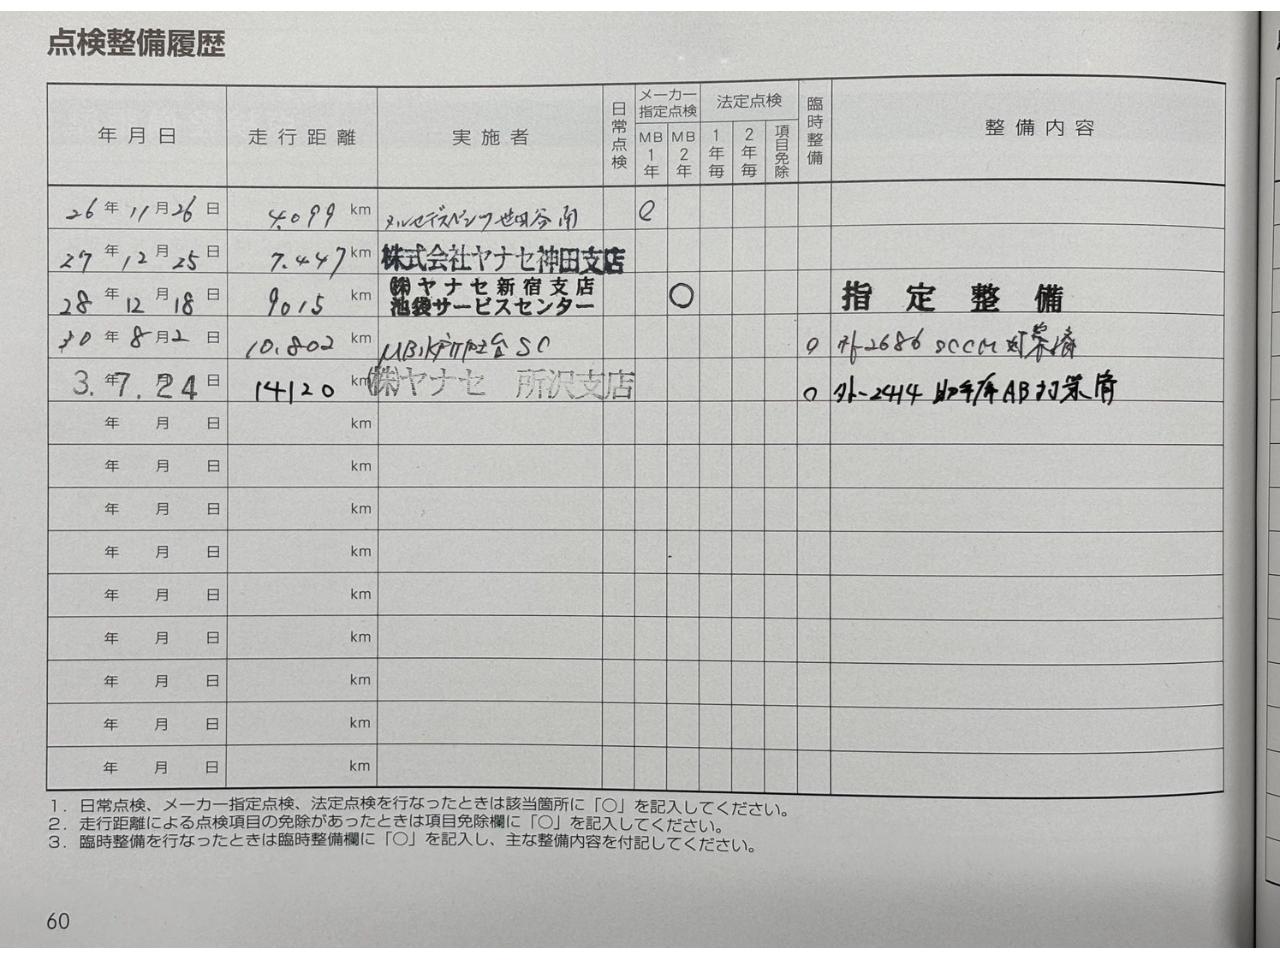 点検整備履歴
年月日 走行距離 実施者 日常点検 メーカー指定点検 MB1年 MB2年 法定点検 1年毎 2年毎 項目免除 臨時整備 整備内容
26年11月26日 4.099km メルセデスベンツ世田谷南
27年12月25日 7.447km 株式会社ヤナセ神田支店
28年12月18日 9015km ㈱ヤナセ新宿支店 ○ 指定整備
池袋サービスセンター
30年8月2日 10.802km SC ○ 外-2686 SCCM対策済
3.年7.月24日 14120km ㈱ヤナセ 所沢支店 ○ 外-2414 助手席AB対策済
年 月 日 km
年 月 日 km
年 月 日 km
年 月 日 km
年 月 日 km
年 月 日 km
年 月 日 km
年 月 日 km
年 月 日 km
1. 日常点検、メーカー指定点検、法定点検を行なったときは該当箇所に「○」を記入してください。
2. 走行距離による点検項目の免除があったときは項目免除欄に「○」を記入してください。
3. 臨時整備を行なったときは臨時整備欄に「○」を記入し、主な整備内容を付記してください。
60